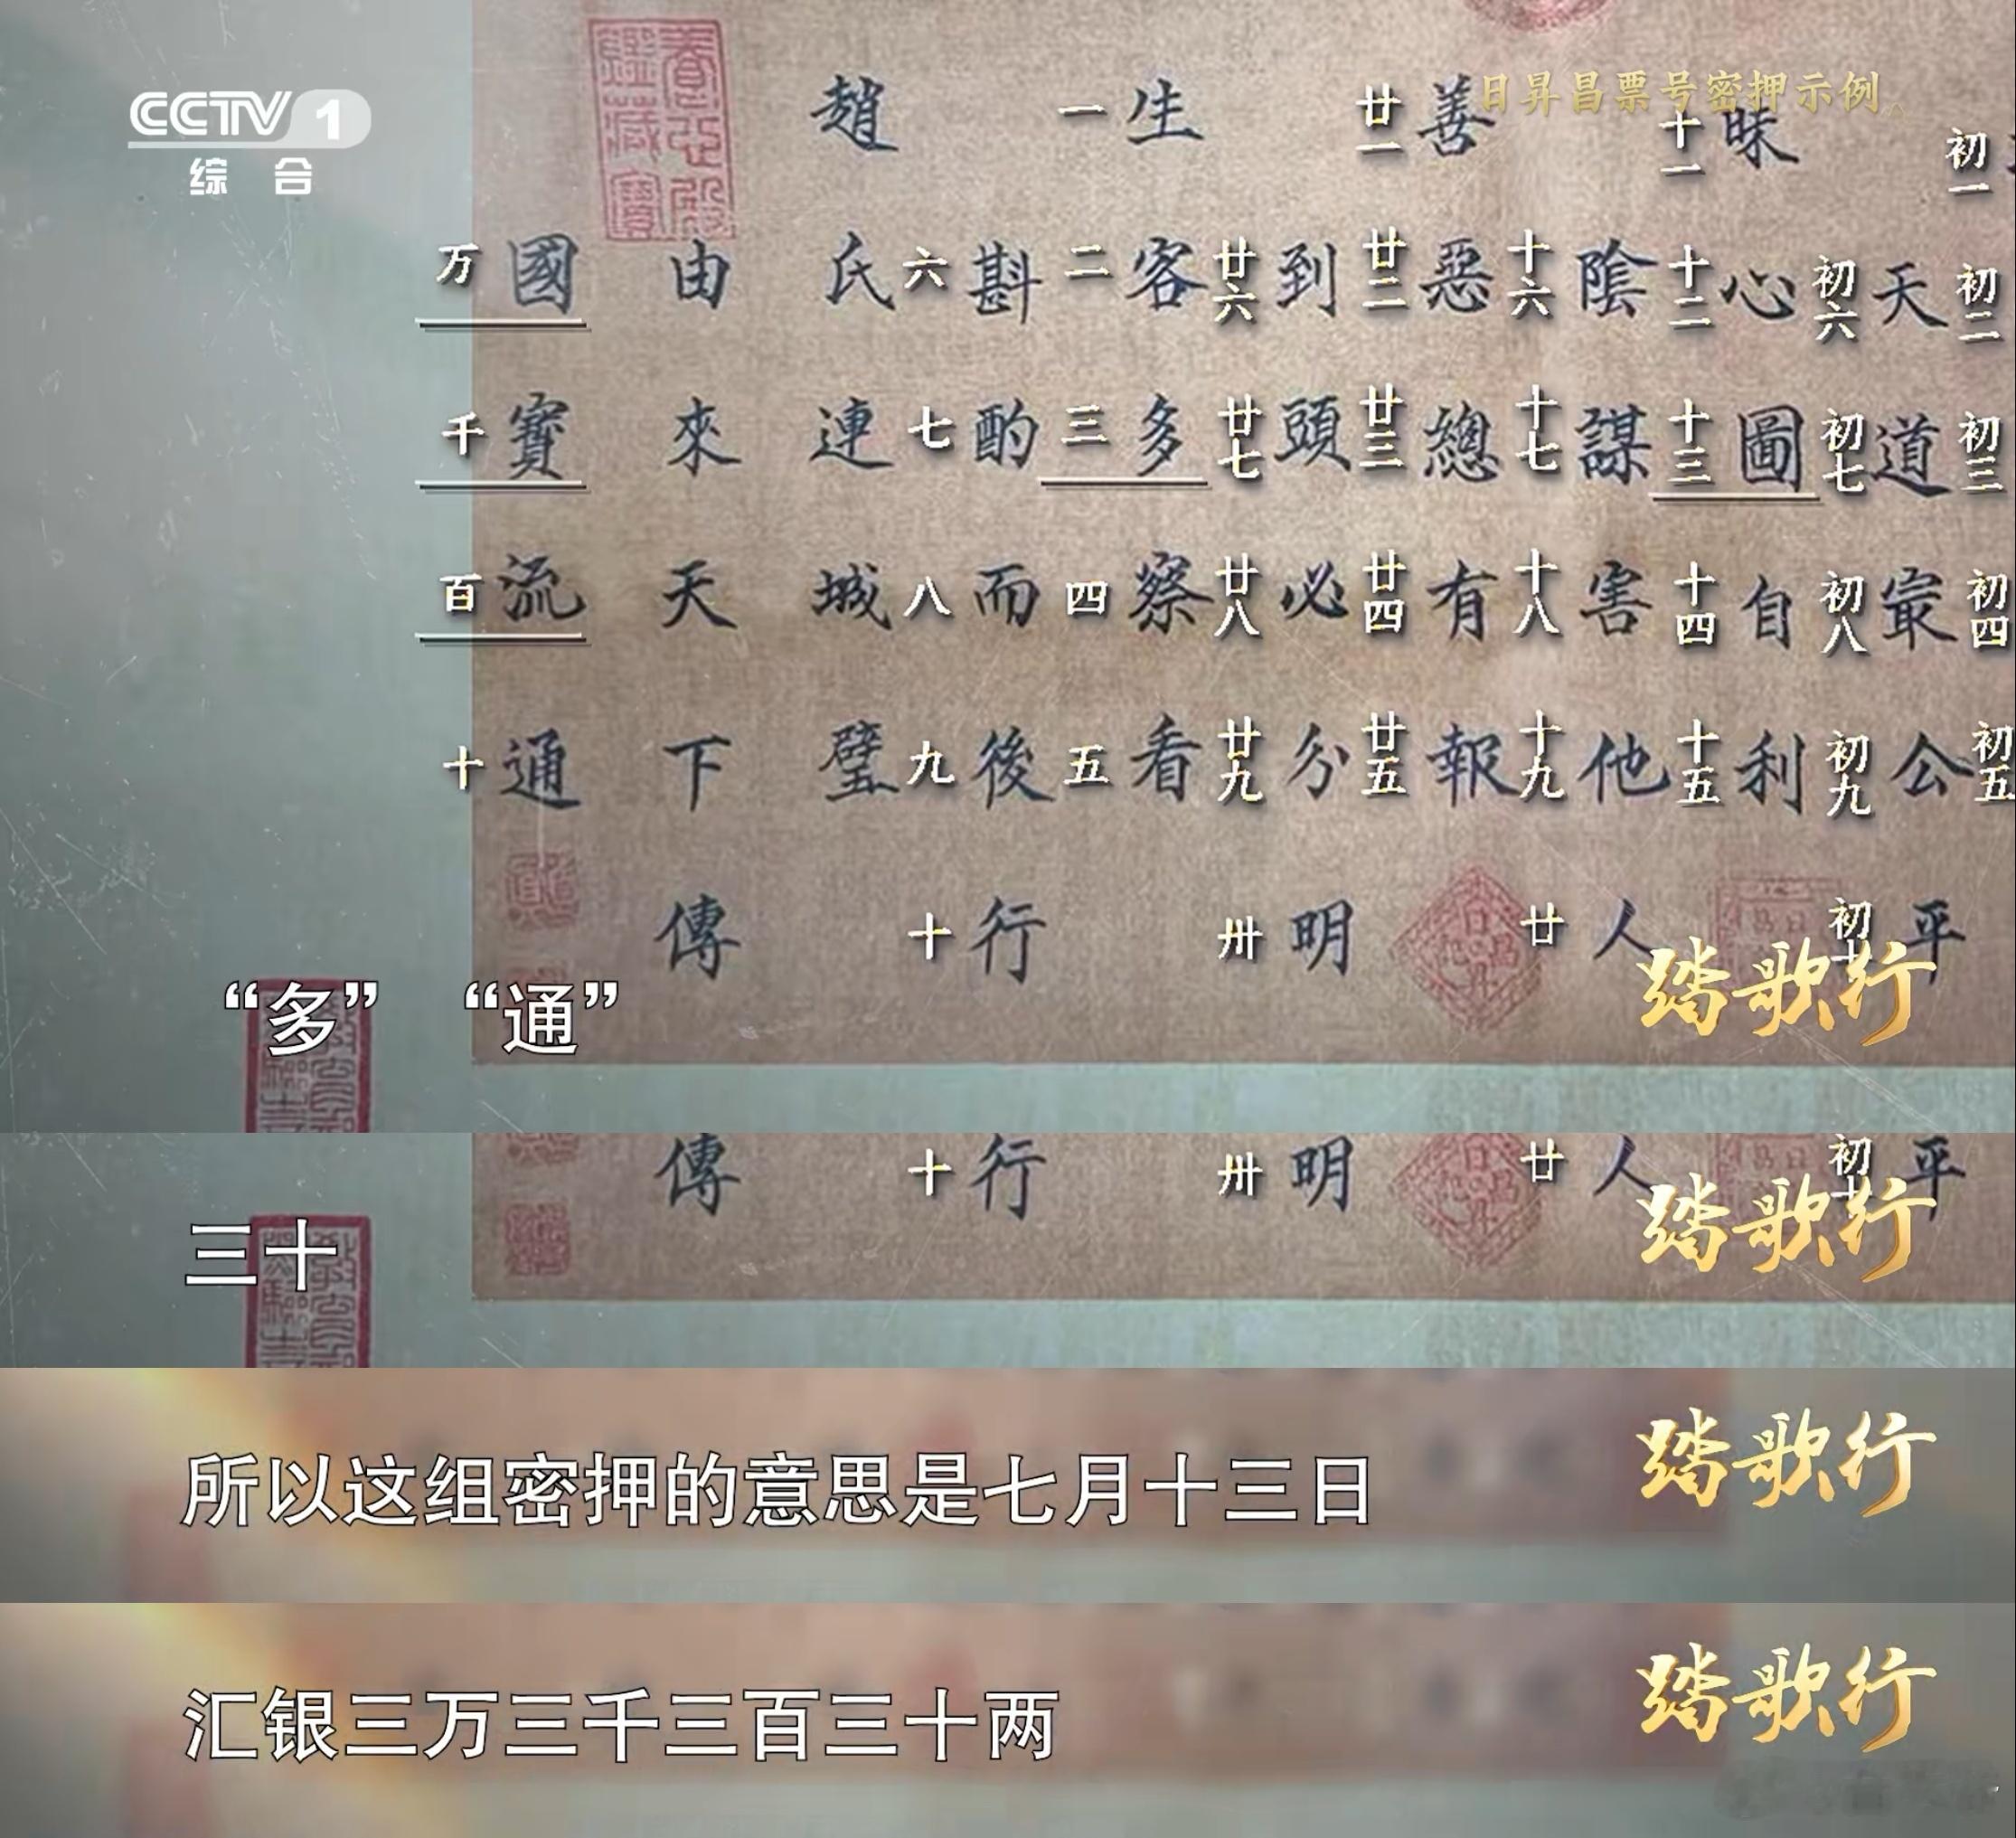 CCTV 1
综合
日昇昌票号密押示例
初一 初二 初三 初四 初五
天道最公平
初六 初七 初八 初九 初十
昧心圖自利
十一 十二 十三 十四 十五
陰謀害他人
十六 十七 十八 十九 廿
善惡總有報
廿一 廿二 廿三 廿四 廿五
到頭必分明
廿六 廿七 廿八 廿九 卅
生客多察看
一 二 三 四 五
斟酌而後行
六 七 八 九 十
趙氏連城璧
由來天下傳
國寶流通
万 千 百 十
“多” “通”
踏歌行
傳 十 行 卅 明 廿 人 初十 平
三十
踏歌行
所以这组密押的意思是七月十三日
踏歌行
汇银三万三千三百三十两
踏歌行